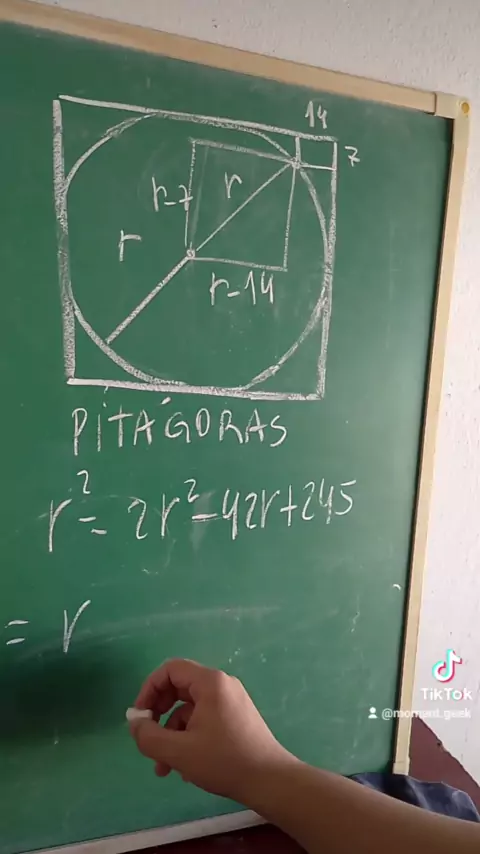 14
7
r-7
r
r
r-14
PITÁGORAS
r² = 2r² - 42r + 245
= r
TikTok
@moment.geek